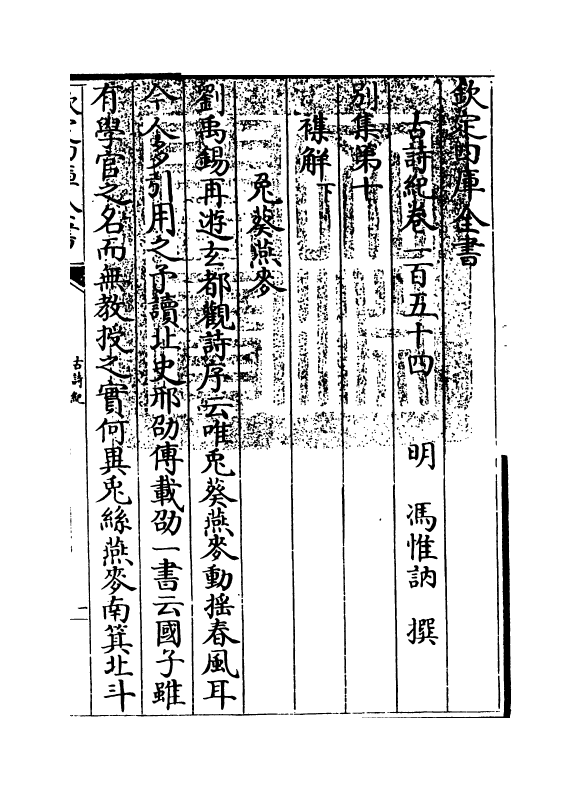 欽定四庫全書
古詩紀卷一百五十四　明　馮惟訥　撰
別集第十
襍解下
兎葵燕麥
劉禹錫再遊玄都觀詩序云唯兎葵燕麥動揺春風耳
今人多引用之予讀北史邢劭傳載劭一書云國子雖
有學官之名而無教授之實何異兎絲燕麥南箕北斗
欽定四庫全書
古詩紀
一